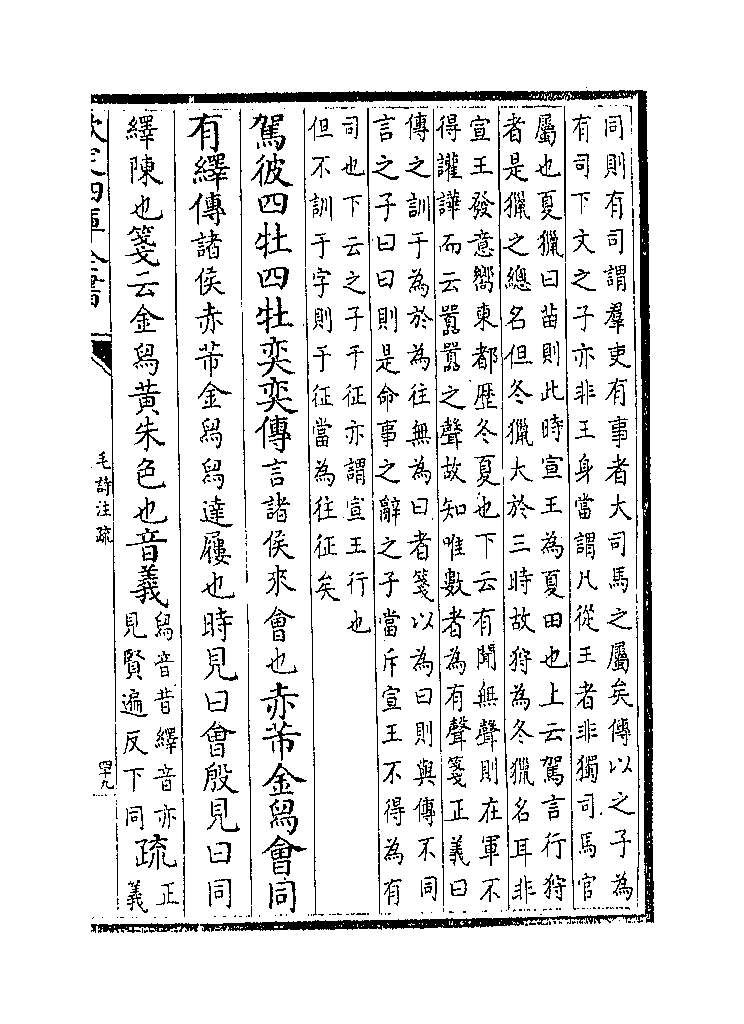 同則有司謂羣吏有事者大司馬之屬矣傳以之子為
有司下文之子亦非王身當謂凡從王者非獨司馬官
屬也夏獵曰苗則此時宣王為夏田也上云駕言行狩
者是獵之總名但冬獵大於三時故狩為冬獵名耳非
宣王發意嚮東都歴冬夏也下云有聞無聲則在軍不
得讙譁而云嚻嚻之聲故知唯數者為有聲箋正義曰
傳之訓于為於為往無為曰者箋以為曰則與傳不同
言之子曰曰則是命事之辭之子當斥宣王不得為有
司也下云之子于征亦謂宣王行也
但不訓于字則于征當為往征矣
駕彼四牡四牡奕奕傳言諸侯來會也赤芾金舄會同
有繹傳諸侯赤芾金舄舄達屨也時見曰會殷見曰同
繹陳也箋云金舄黄朱色也音義舄音昔繹音亦
見賢遍反下同疏正
義
欽定四庫全書
毛詩注疏
四十九